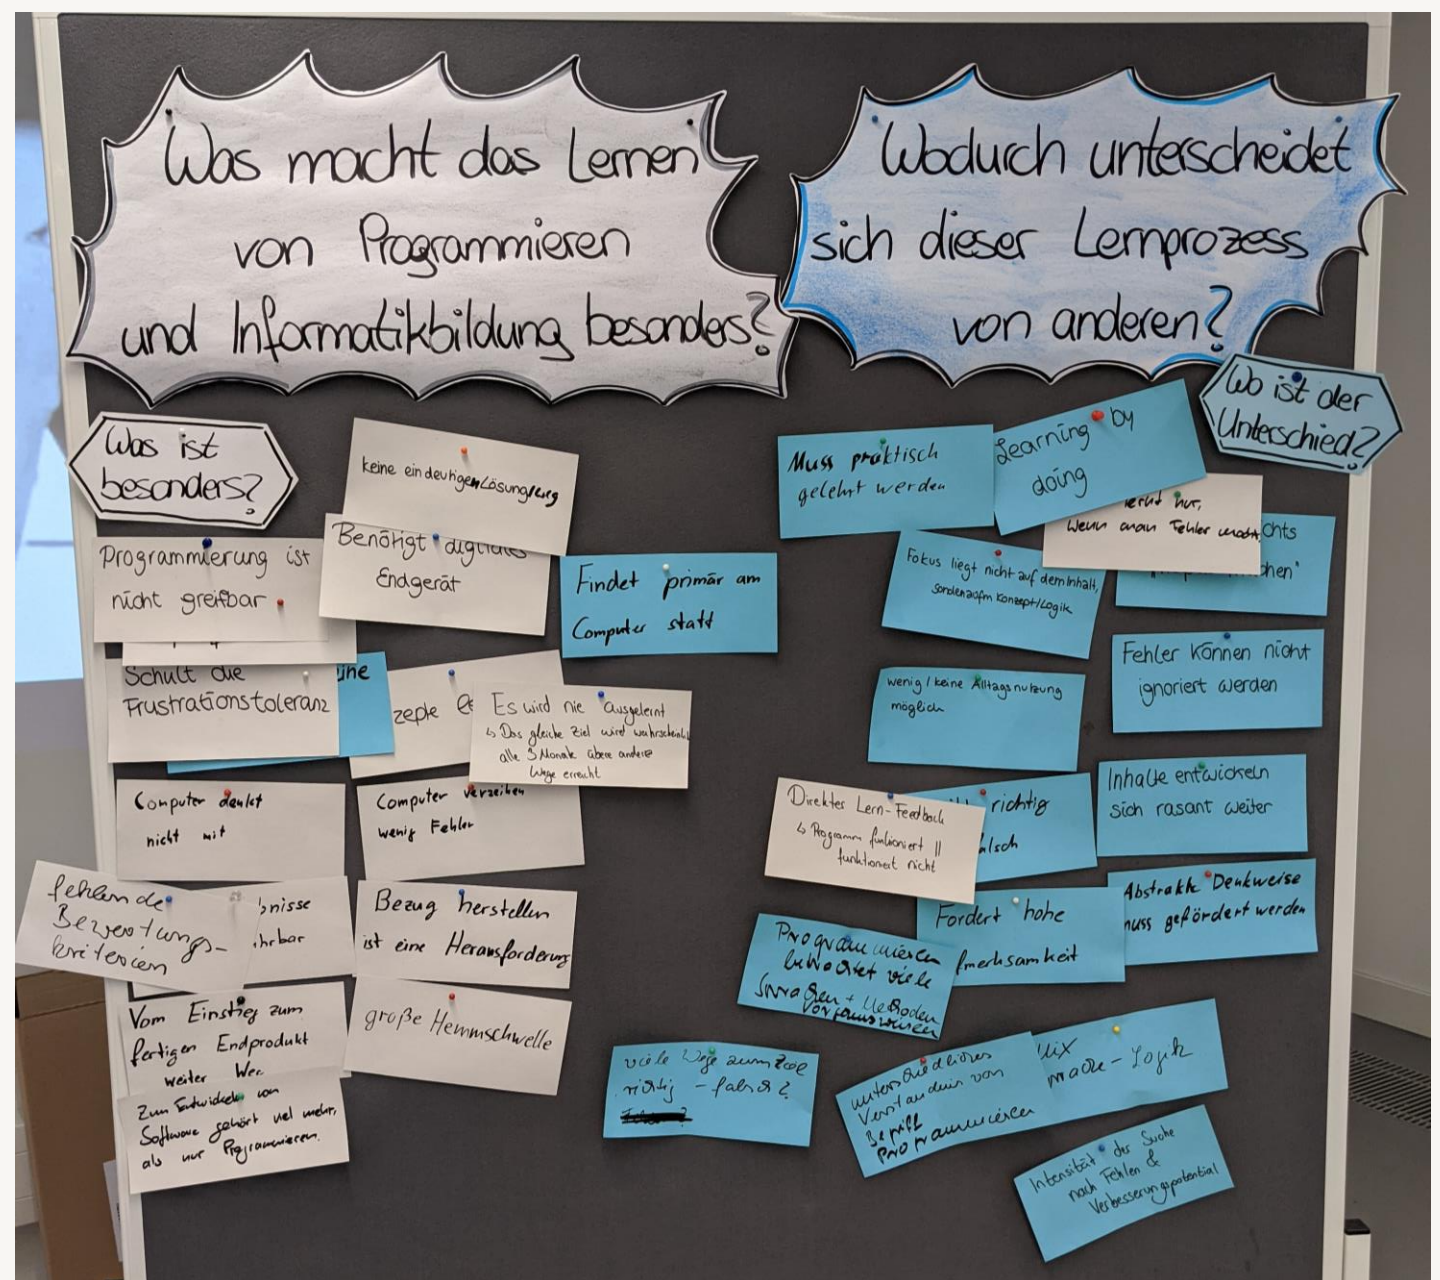 Was macht das Lernen
von Programmieren
und Informatikbildung besonders?
Wodurch unterscheidet
sich dieser Lernprozess
von anderen?
Was ist
besonders?
keine eindeutigen Lösung/weg
Benötigt digitales
Endgerät
Programmierung ist
nicht greifbar
Findet primär am
Computer statt
Schult die
Frustrationstoleranz
ine
zepte
Es wird nie ausgelernt
↳ Das gleiche Ziel wird wahrscheinl.
alle 3 Monate über andere
Wege erreicht
Computer denkt
nicht mit
Computer verzeihen
wenig Fehler
fehlende
Bewertungs-
kriterien
bnisse
hrbar
Bezug herstellen
ist eine Herausforderung
Vom Einstieg zum
fertigen Endprodukt
weiter Weg
große Hemmschwelle
Zum Entwickeln von
Software gehört viel mehr,
als nur Programmieren.
Wo ist der
Unterschied?
Muss praktisch
gelehrt werden
Learning by
doing
lernt nur,
Wenn man Fehler macht
chts
hen"
Fokus liegt nicht auf dem Inhalt,
sondern aufm Konzept/Logik
Fehler können nicht
ignoriert werden
wenig / keine Alltagsnutzung
möglich
Inhalte entwickeln
sich rasant weiter
Direktes Lern-Feedback
↳ Programm funktioniert ||
funktioniert nicht
richtig
alsch
Abstrakte Denkweise
muss gefördert werden
Fordert hohe
fmerksamkeit
Programmieren
viele
Sprachen + Methoden
viele Wege zum Ziel
richtig - falsch?
unterschiedliches
Verständnis von
Begriff
Programmieren
Mix
- Logik
Intensität der Suche
nach Fehlern &
Verbesserungspotential